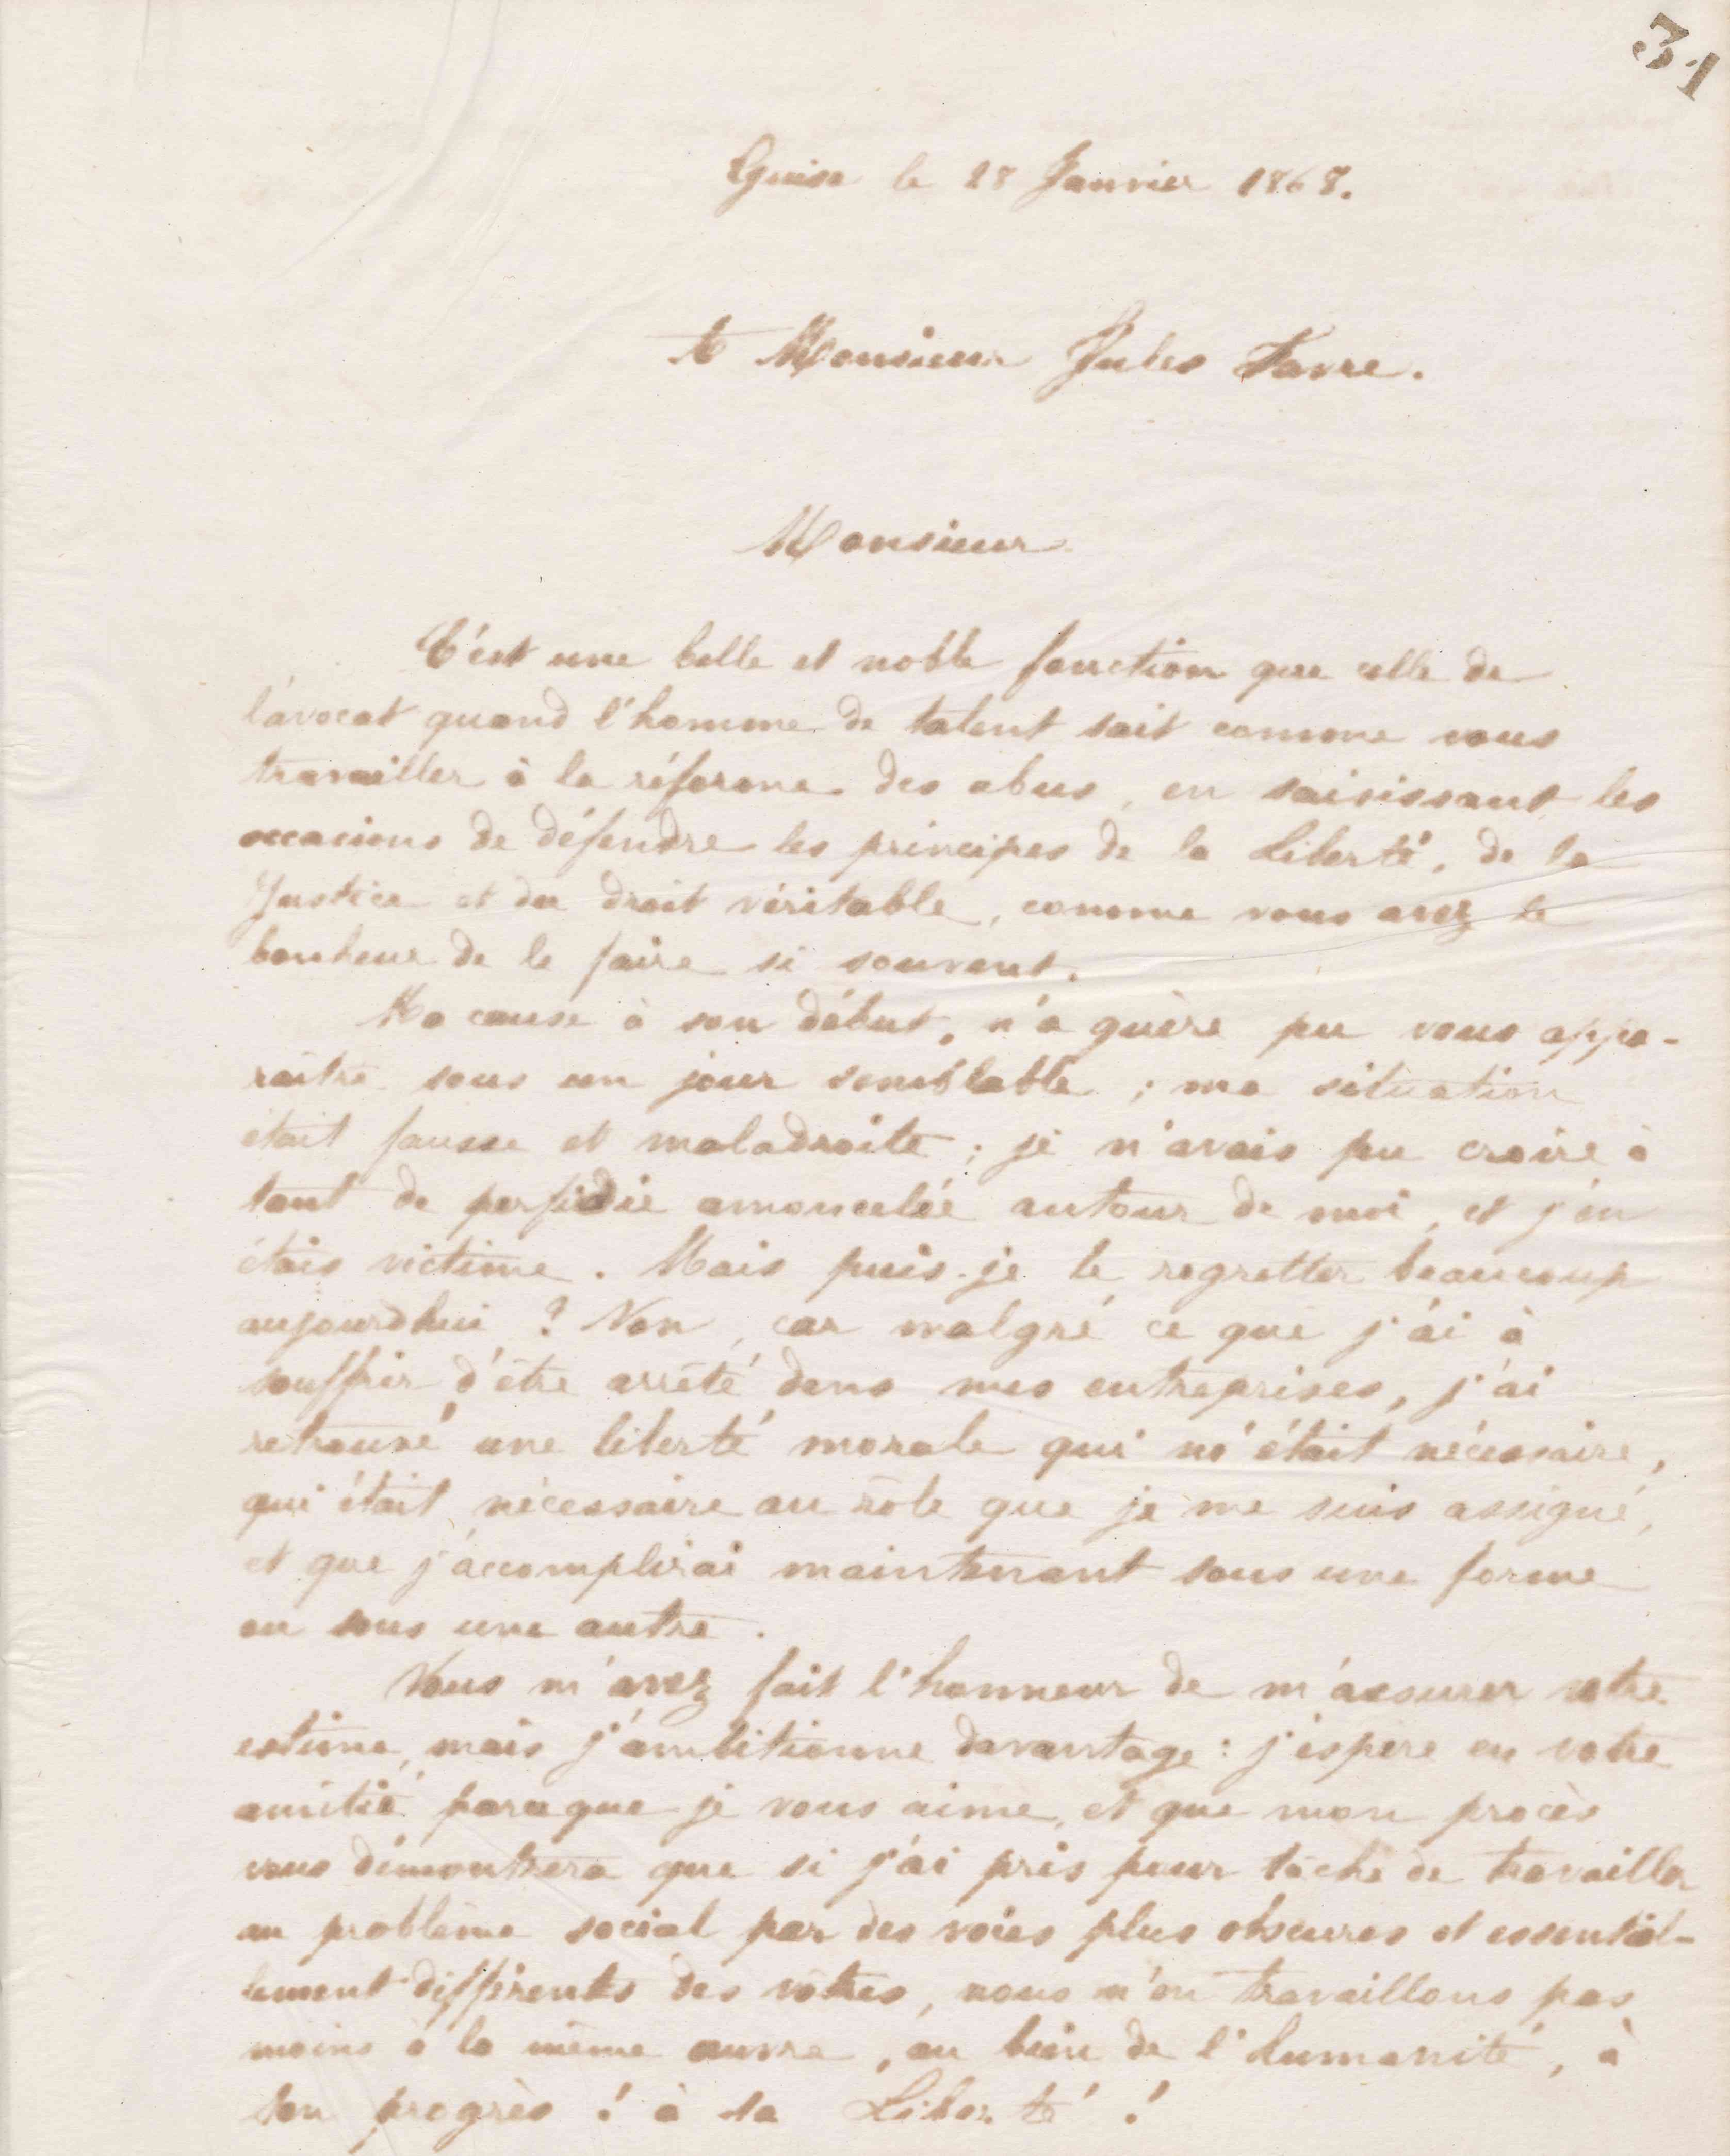 31
Guise le 28 Janvier 1868.
A Monsieur Jules Favre.
Monsieur
C'est une belle et noble fonction que celle de
l'avocat quand l'homme de talent sait comme vous
travailler à la réforme des abus, en saisissant les
occacions de défendre les principes de la Liberté, de la
Justice et du droit véritable, comme vous avez le
bonheur de le faire si souvent.
Ma cause à son début, n'a guère pu vous appa-
raître sous un jour semblable ; ma situation
était fausse et maladroite ; je n'avais pu croire à
tant de perfidie amoncelée autour de moi, et j'en
étais victime. Mais puis-je le regretter beaucoup
aujourd'hui ? Non, car malgré ce que j'ai à
souffrir d'être arrêté dans mes entreprises, j'ai
retrouvé une liberté morale qui m'était nécessaire,
qui était nécessaire au rôle que je me suis assigné,
et que j'accomplirai maintenant sous une forme
ou sous une autre.
Vous m'avez fait l'honneur de m'assurer votre
estime, mais j'ambitionne davantage : j'espère en votre
amitié parceque je vous aime, et que mon procès
vous démontrera que si j'ai pris pour tâche de travailler
au problème social par des voies plus obscures et essentiel-
lement différentes des vôtres, nous n'en travaillons pas
moins à la même œuvre, au bien de l'humanité, à
son progrès ! à sa Liberté !